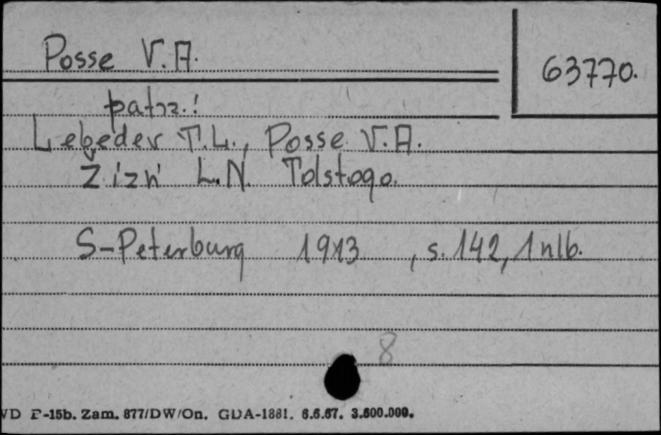 Posse V.A.
63770.
patrz:
Lebedev T.L., Posse V.A.
Žizń L.N. Tolstogo.
S-Peterburg 1913, s. 142, 1 nlb.
8
VD P-15b. Zam. 877/DW/On. GDA-1881. 6.6.67. 3.600.000.